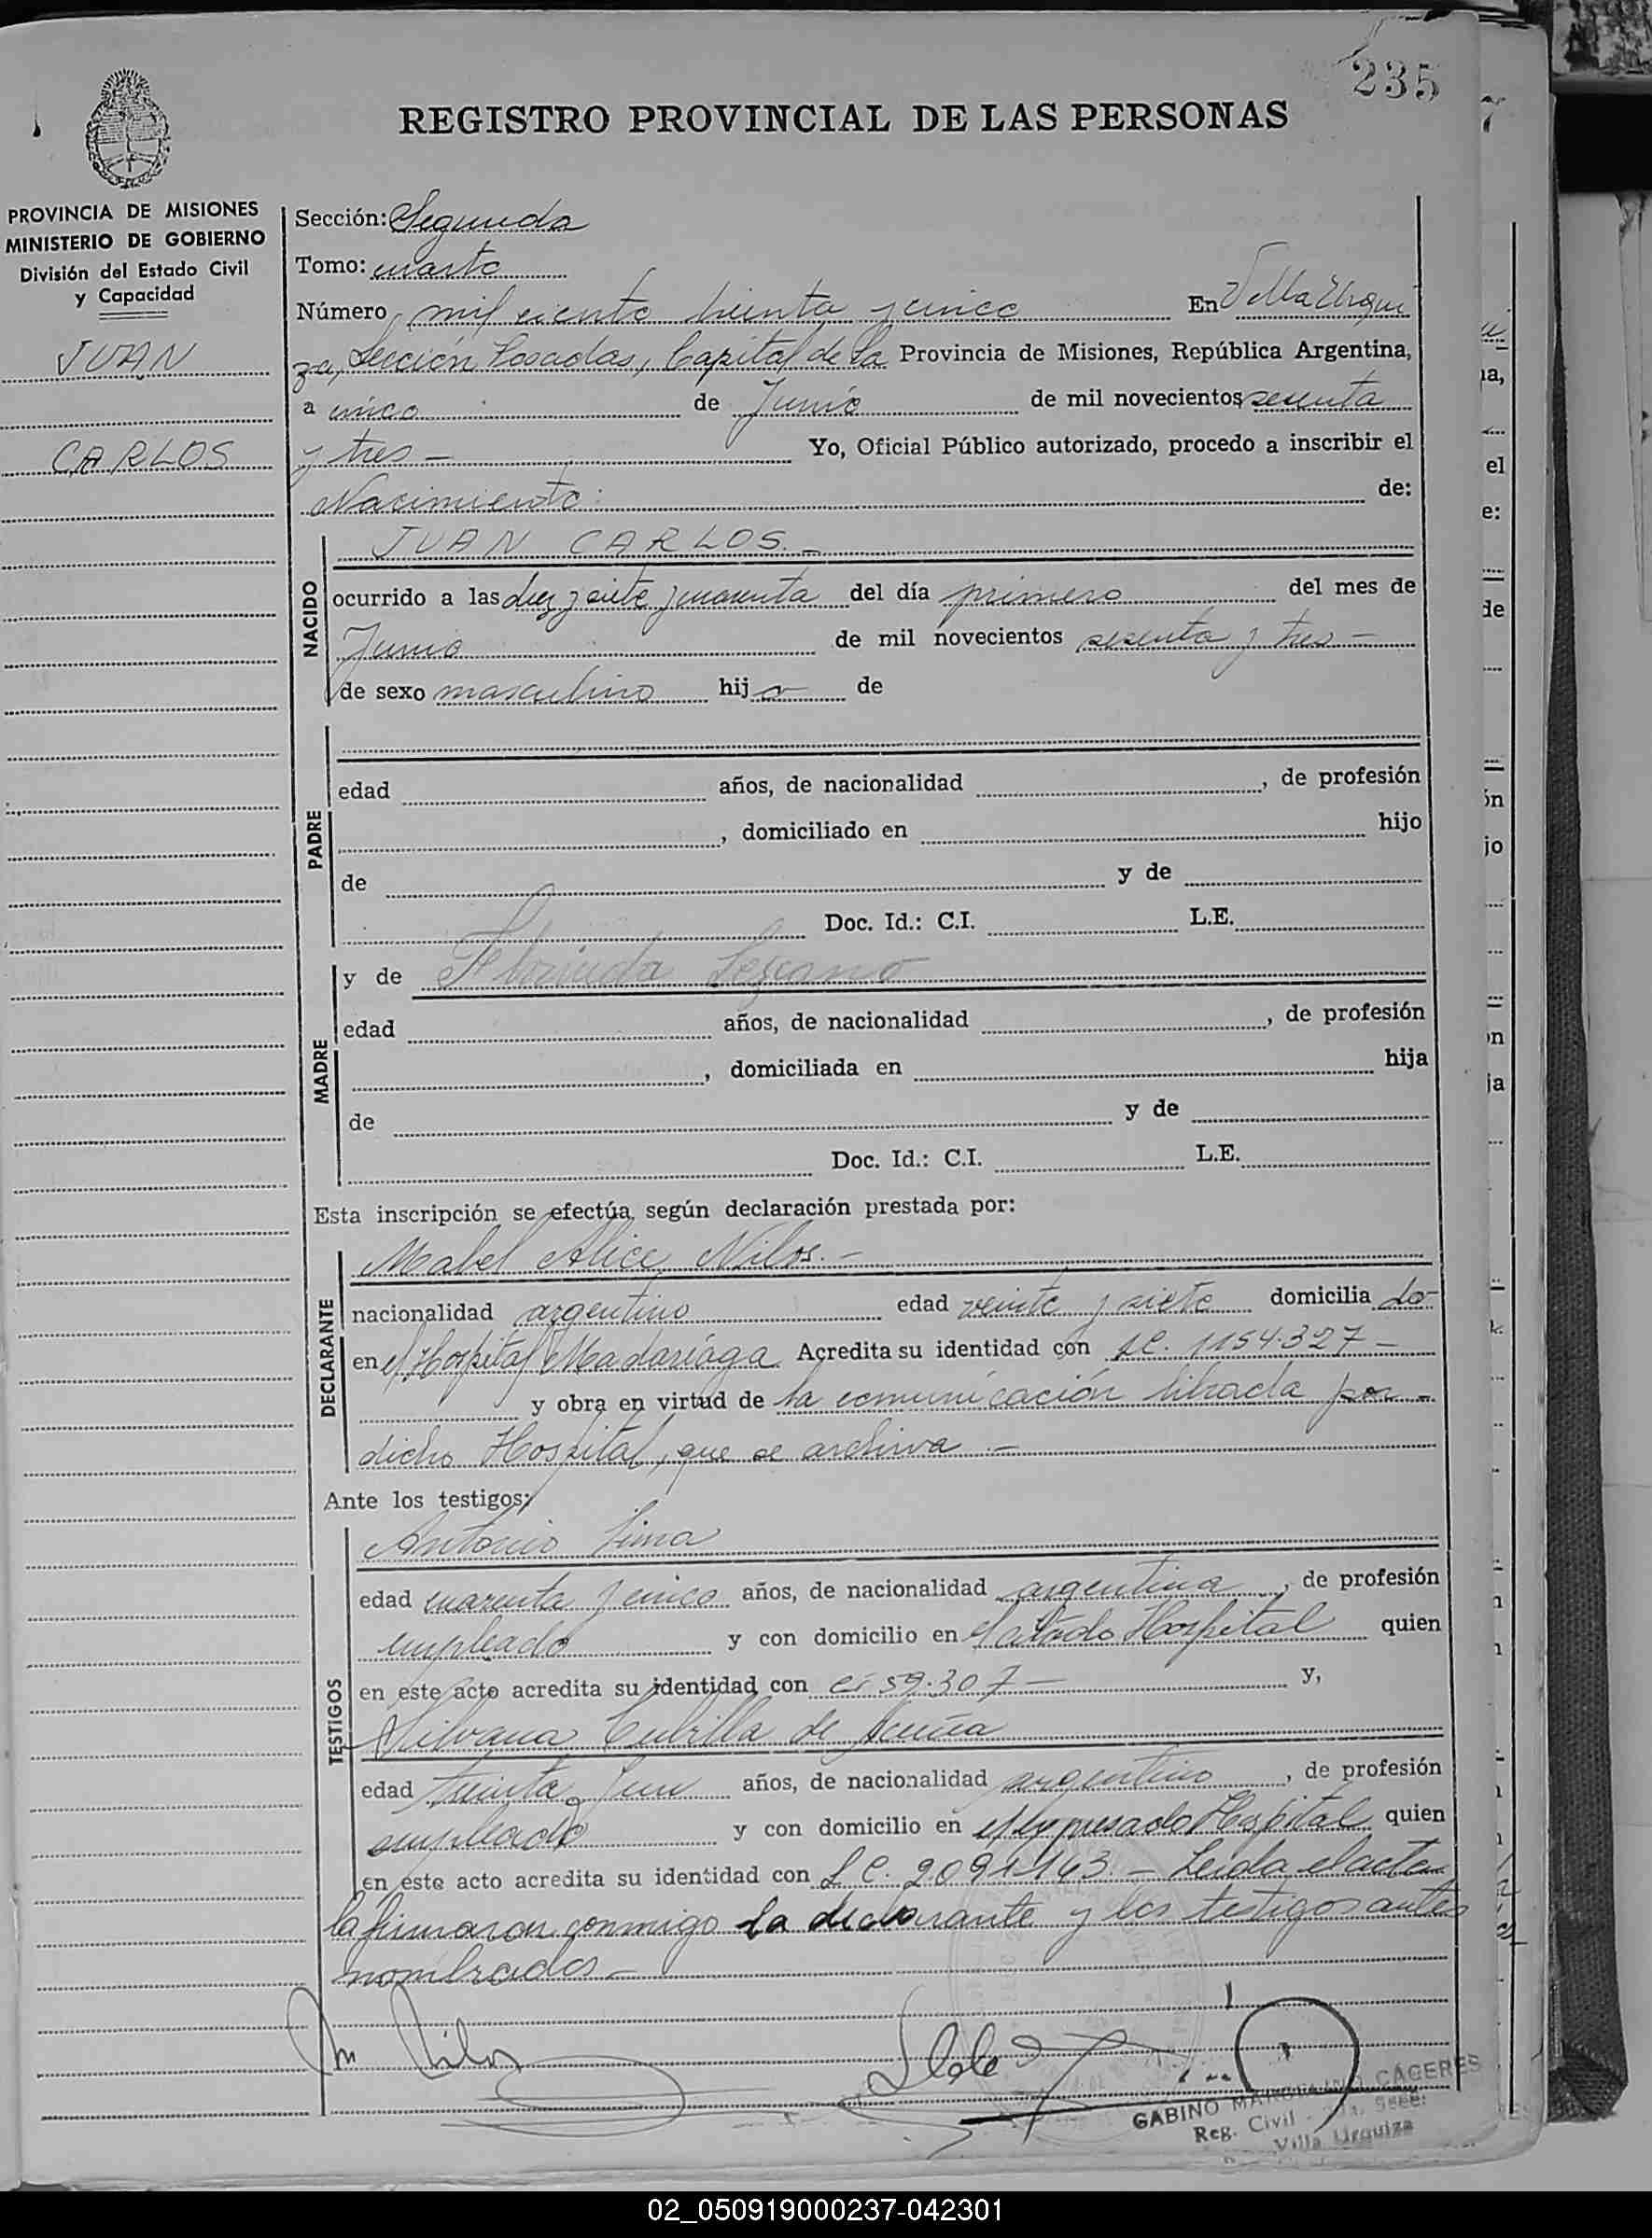 235
REGISTRO PROVINCIAL DE LAS PERSONAS
PROVINCIA DE MISIONES
MINISTERIO DE GOBIERNO
División del Estado Civil
y Capacidad
JUAN
CARLOS
Sección: Segunda
Tomo: cuarto
Número mil ciento treinta y cinco En Villa Urqui
za, Sección Posadas, Capital de la Provincia de Misiones, República Argentina,
a cinco de Junio de mil novecientos sesenta
y tres - Yo, Oficial Público autorizado, procedo a inscribir el
Nacimiento: de:
NACIDO
JUAN CARLOS. -
ocurrido a las diez y siete y cuarenta del día primero del mes de
Junio de mil novecientos sesenta y tres -
de sexo masculino hijo de
PADRE
edad años, de nacionalidad , de profesión
, domiciliado en hijo
de y de
Doc. Id.: C.I. L.E.
MADRE
y de Florinda Lezcano
edad años, de nacionalidad , de profesión
, domiciliada en hija
de y de
Doc. Id.: C.I. L.E.
Esta inscripción se efectúa según declaración prestada por:
DECLARANTE
Mabel Alice Nilos. -
nacionalidad argentino edad veinte y siete domicilia do
en el Hospital Madariaga Acredita su identidad con LC. 1154.327 -
y obra en virtud de la comunicación librada por -
dicho Hospital, que se archiva. -
Ante los testigos:
TESTIGOS
Antonio Lima
edad cuarenta y cinco años, de nacionalidad argentina, de profesión
empleado y con domicilio en el citado Hospital quien
en este acto acredita su identidad con CI 59.307 - y,
Silvana de Acuña
edad treinta y un años, de nacionalidad argentino, de profesión
empleado y con domicilio en el expresado Hospital quien
en este acto acredita su identidad con L C. 2091143. - Leida el acta
la firmaron conmigo la declarante y los testigos antes
nombrados -
M Nilos
GABINO CÁCERES
Reg. Civil Secc.
Villa Urquiza
02_050919000237-042301